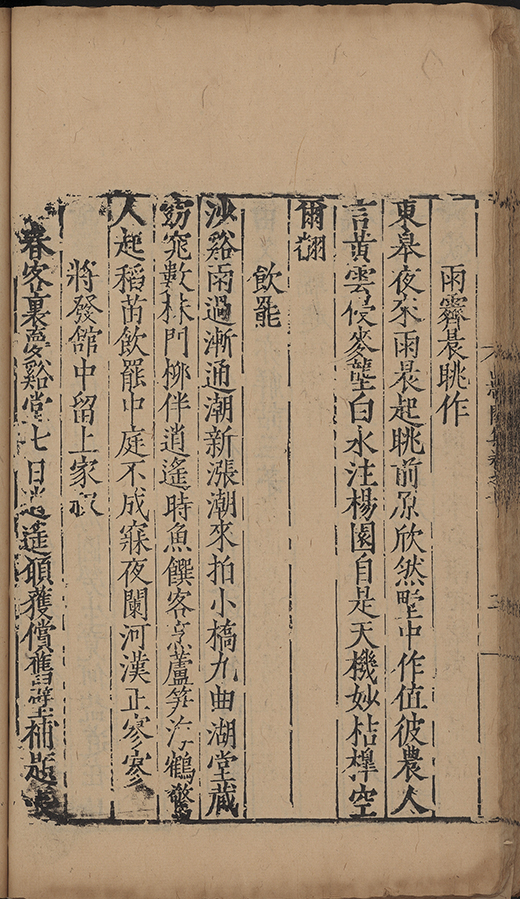 雨霽晨眺作
東皋夜來雨晨起眺前原欣然野中作值彼農人
言黃雲侵麥壟白水注楊園自是天機妙桔槔空
爾翻
飲罷
沙谿雨過漸通潮新漲潮來拍小橋九曲湖堂藏
窈窕數株門柳伴逍遙時魚饌客烹蘆笋海鶴驚
人起稻苗飲罷中庭不成寐夜闌河漢正寥寥
將發館中留上家叔
春客裏憂谿堂七日逍遙頗獲償舊壁補題